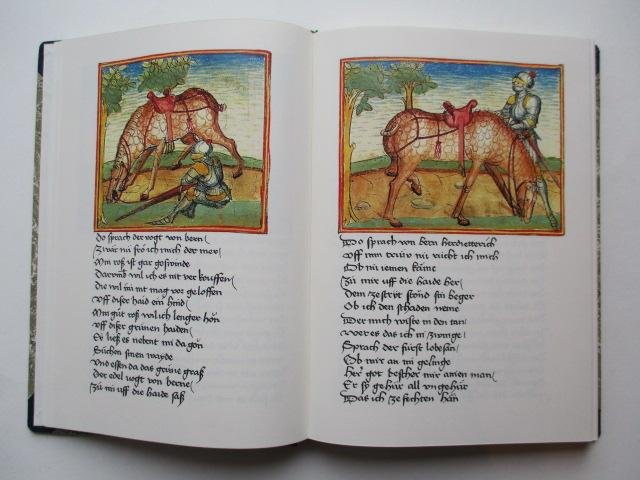 do sprach der vogt von bern
Zwar nu frö ich mich der mer
Min roß ist gar geswinde
Darumb wil ich es nit ver kouffen
die wil mir mag vor geloffen
vff diser haid ein hind
Min gut roß wil ich lenger hön
vff diser grünen haiden
Er ließ es nebent im da gön
Süchen sinen wayde
vnd essen da das grüne graß
Der edel vogt von berne
Zü im uff die haide saß
Do sprach von bern herdietterich
vff min trüw nu rücht ich mich
Ob nü iemen käme
Zü mir uff die haide her
dem ze stryt stönd sin beger
Ob ich den schaden neme
Der mich wiste in den tan
wer es das ich in zwinge
Sprach der fürst lobesan
Ob mir an im gelinge
her got bescher mir ainen man
Er sy gehür all vngehür
Das ich ze fechten hän